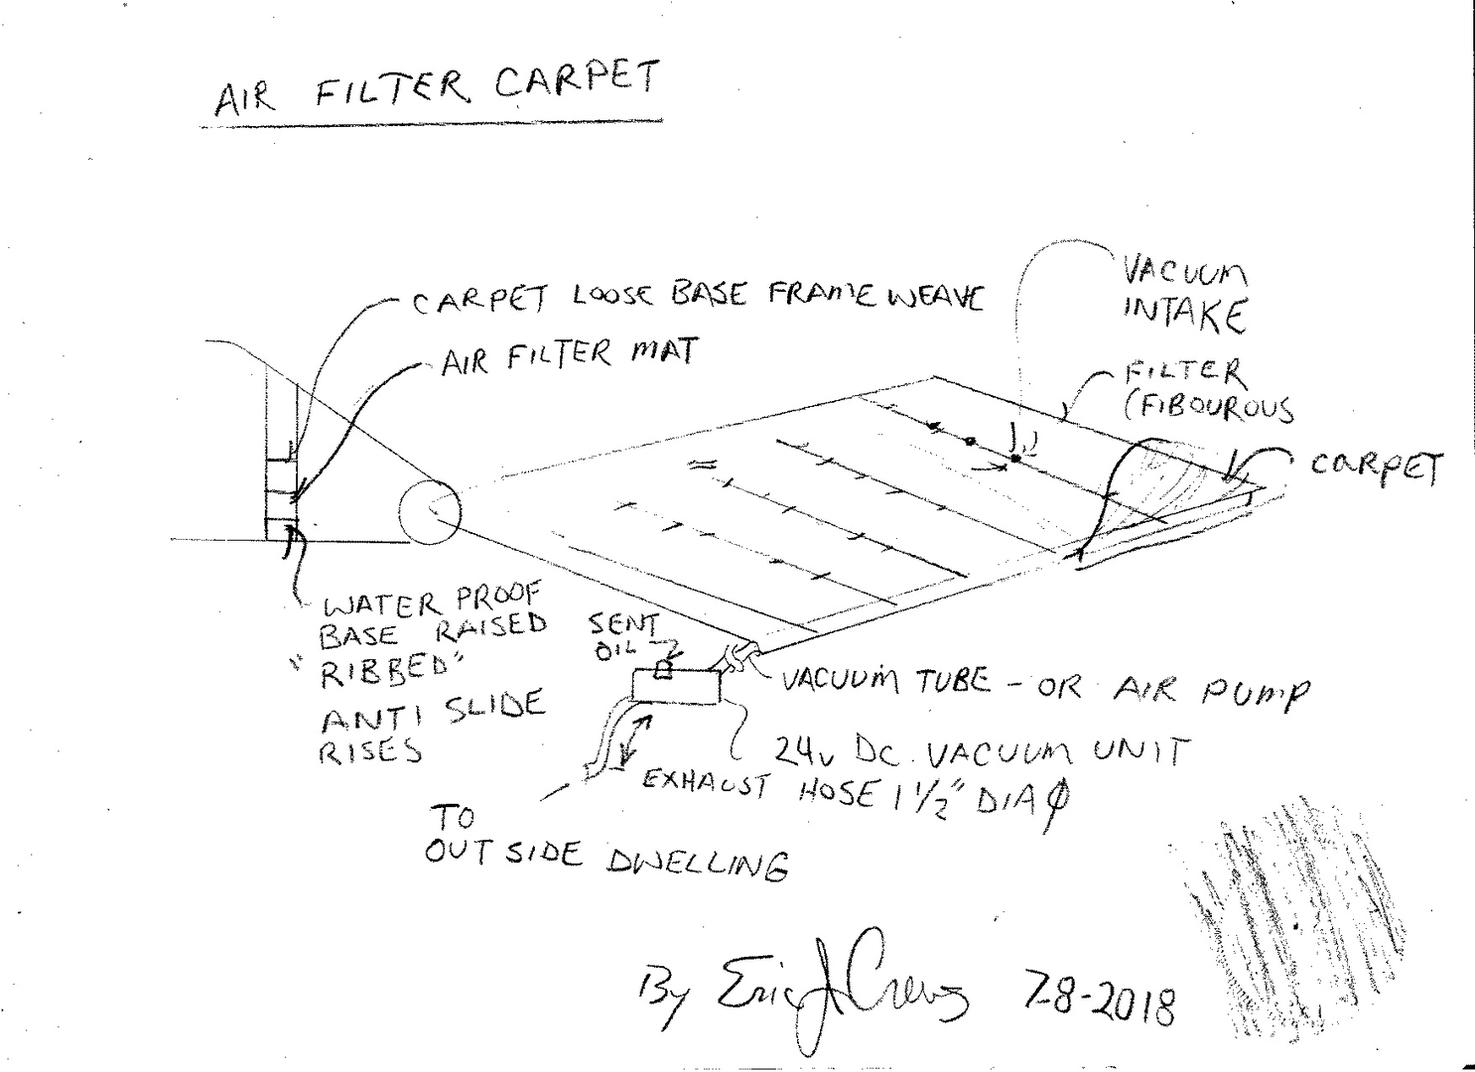 AIR FILTER CARPET
CARPET LOOSE BASE FRAME WEAVE
AIR FILTER MAT
VACUUM
INTAKE
FILTER
(FIBOUROUS
CARPET
WATER PROOF
BASE RAISED
"RIBBED"
ANTI SLIDE
RISES
SENT
OIL
VACUUM TUBE - OR AIR PUMP
24v DC. VACUUM UNIT
EXHAUST HOSE 1 1/2" DIA ϕ
TO
OUT SIDE DWELLING
By Eric J 7-8-2018